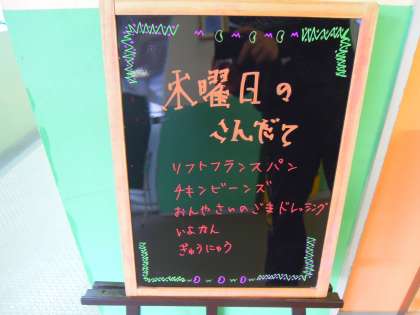 木曜日の
こんだて
ソフトフランスパン
チキンビーンズ
おんやさいのごまドレッシング
いよかん
ぎゅうにゅう